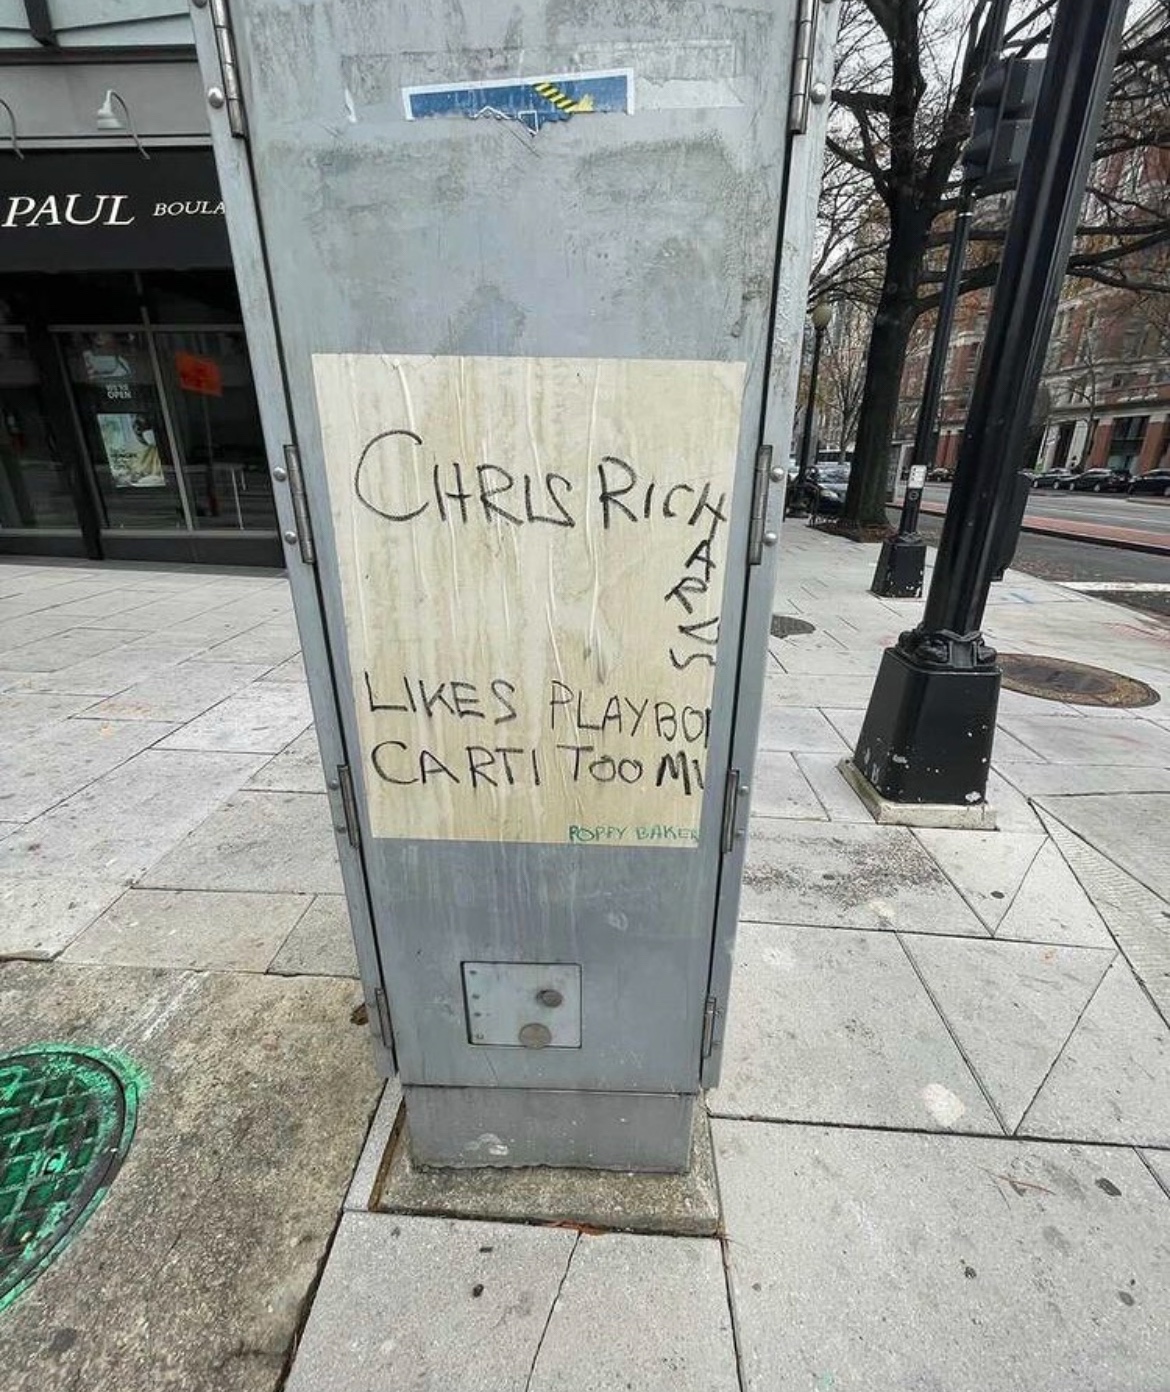 PAUL BOULA
WE'RE
OPEN
CHRIS RICHARDS
LIKES PLAYBOI
CARTI TOO MU
POPPY BAKER